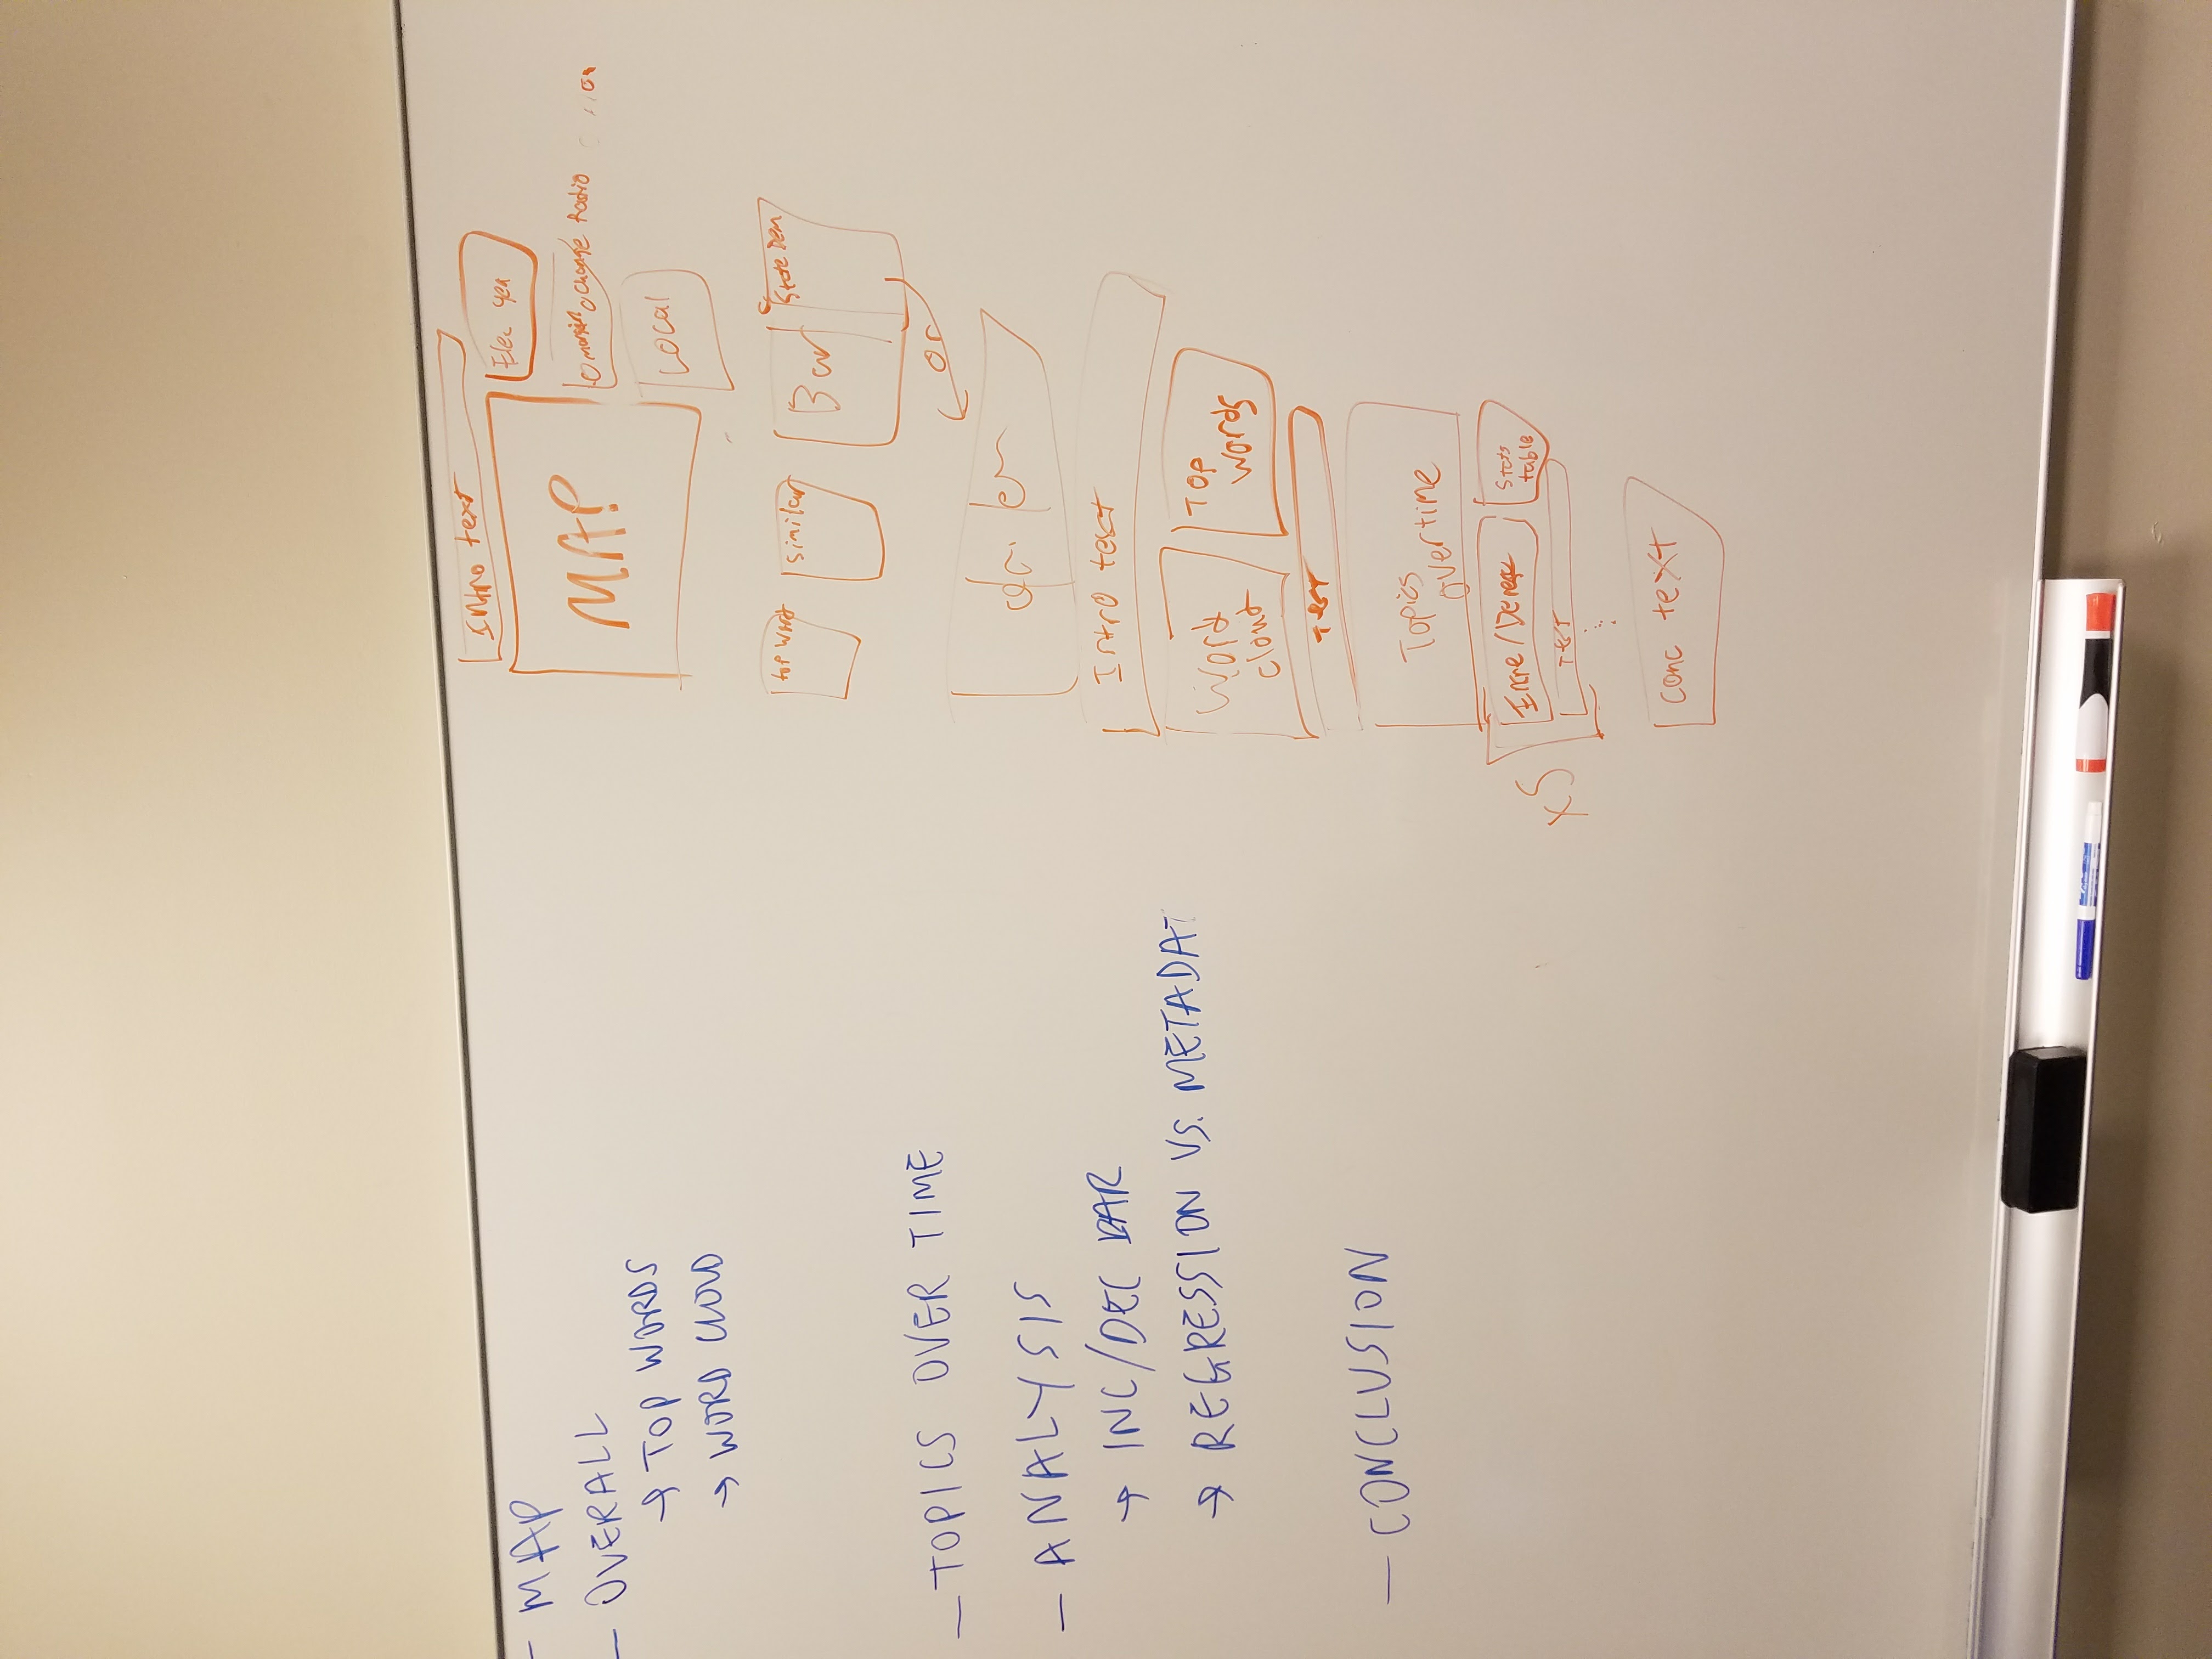 - MAP
- OVERALL
→ TOP WORDS
→ WORD CLOUD
- TOPICS OVER TIME
- ANALYSIS
→ INC/DEC BAR
→ REGRESSION VS. METADAT
- CONCLUSION
Intro text
MAP
Elec yea
margin change Radio
Local
top word
similar
Bar
State Dem
or
Intro text
Word
cloud
Top
words
Text
Topics
overtime
x5
Incre/Decre
Stats
table
Text
conc text